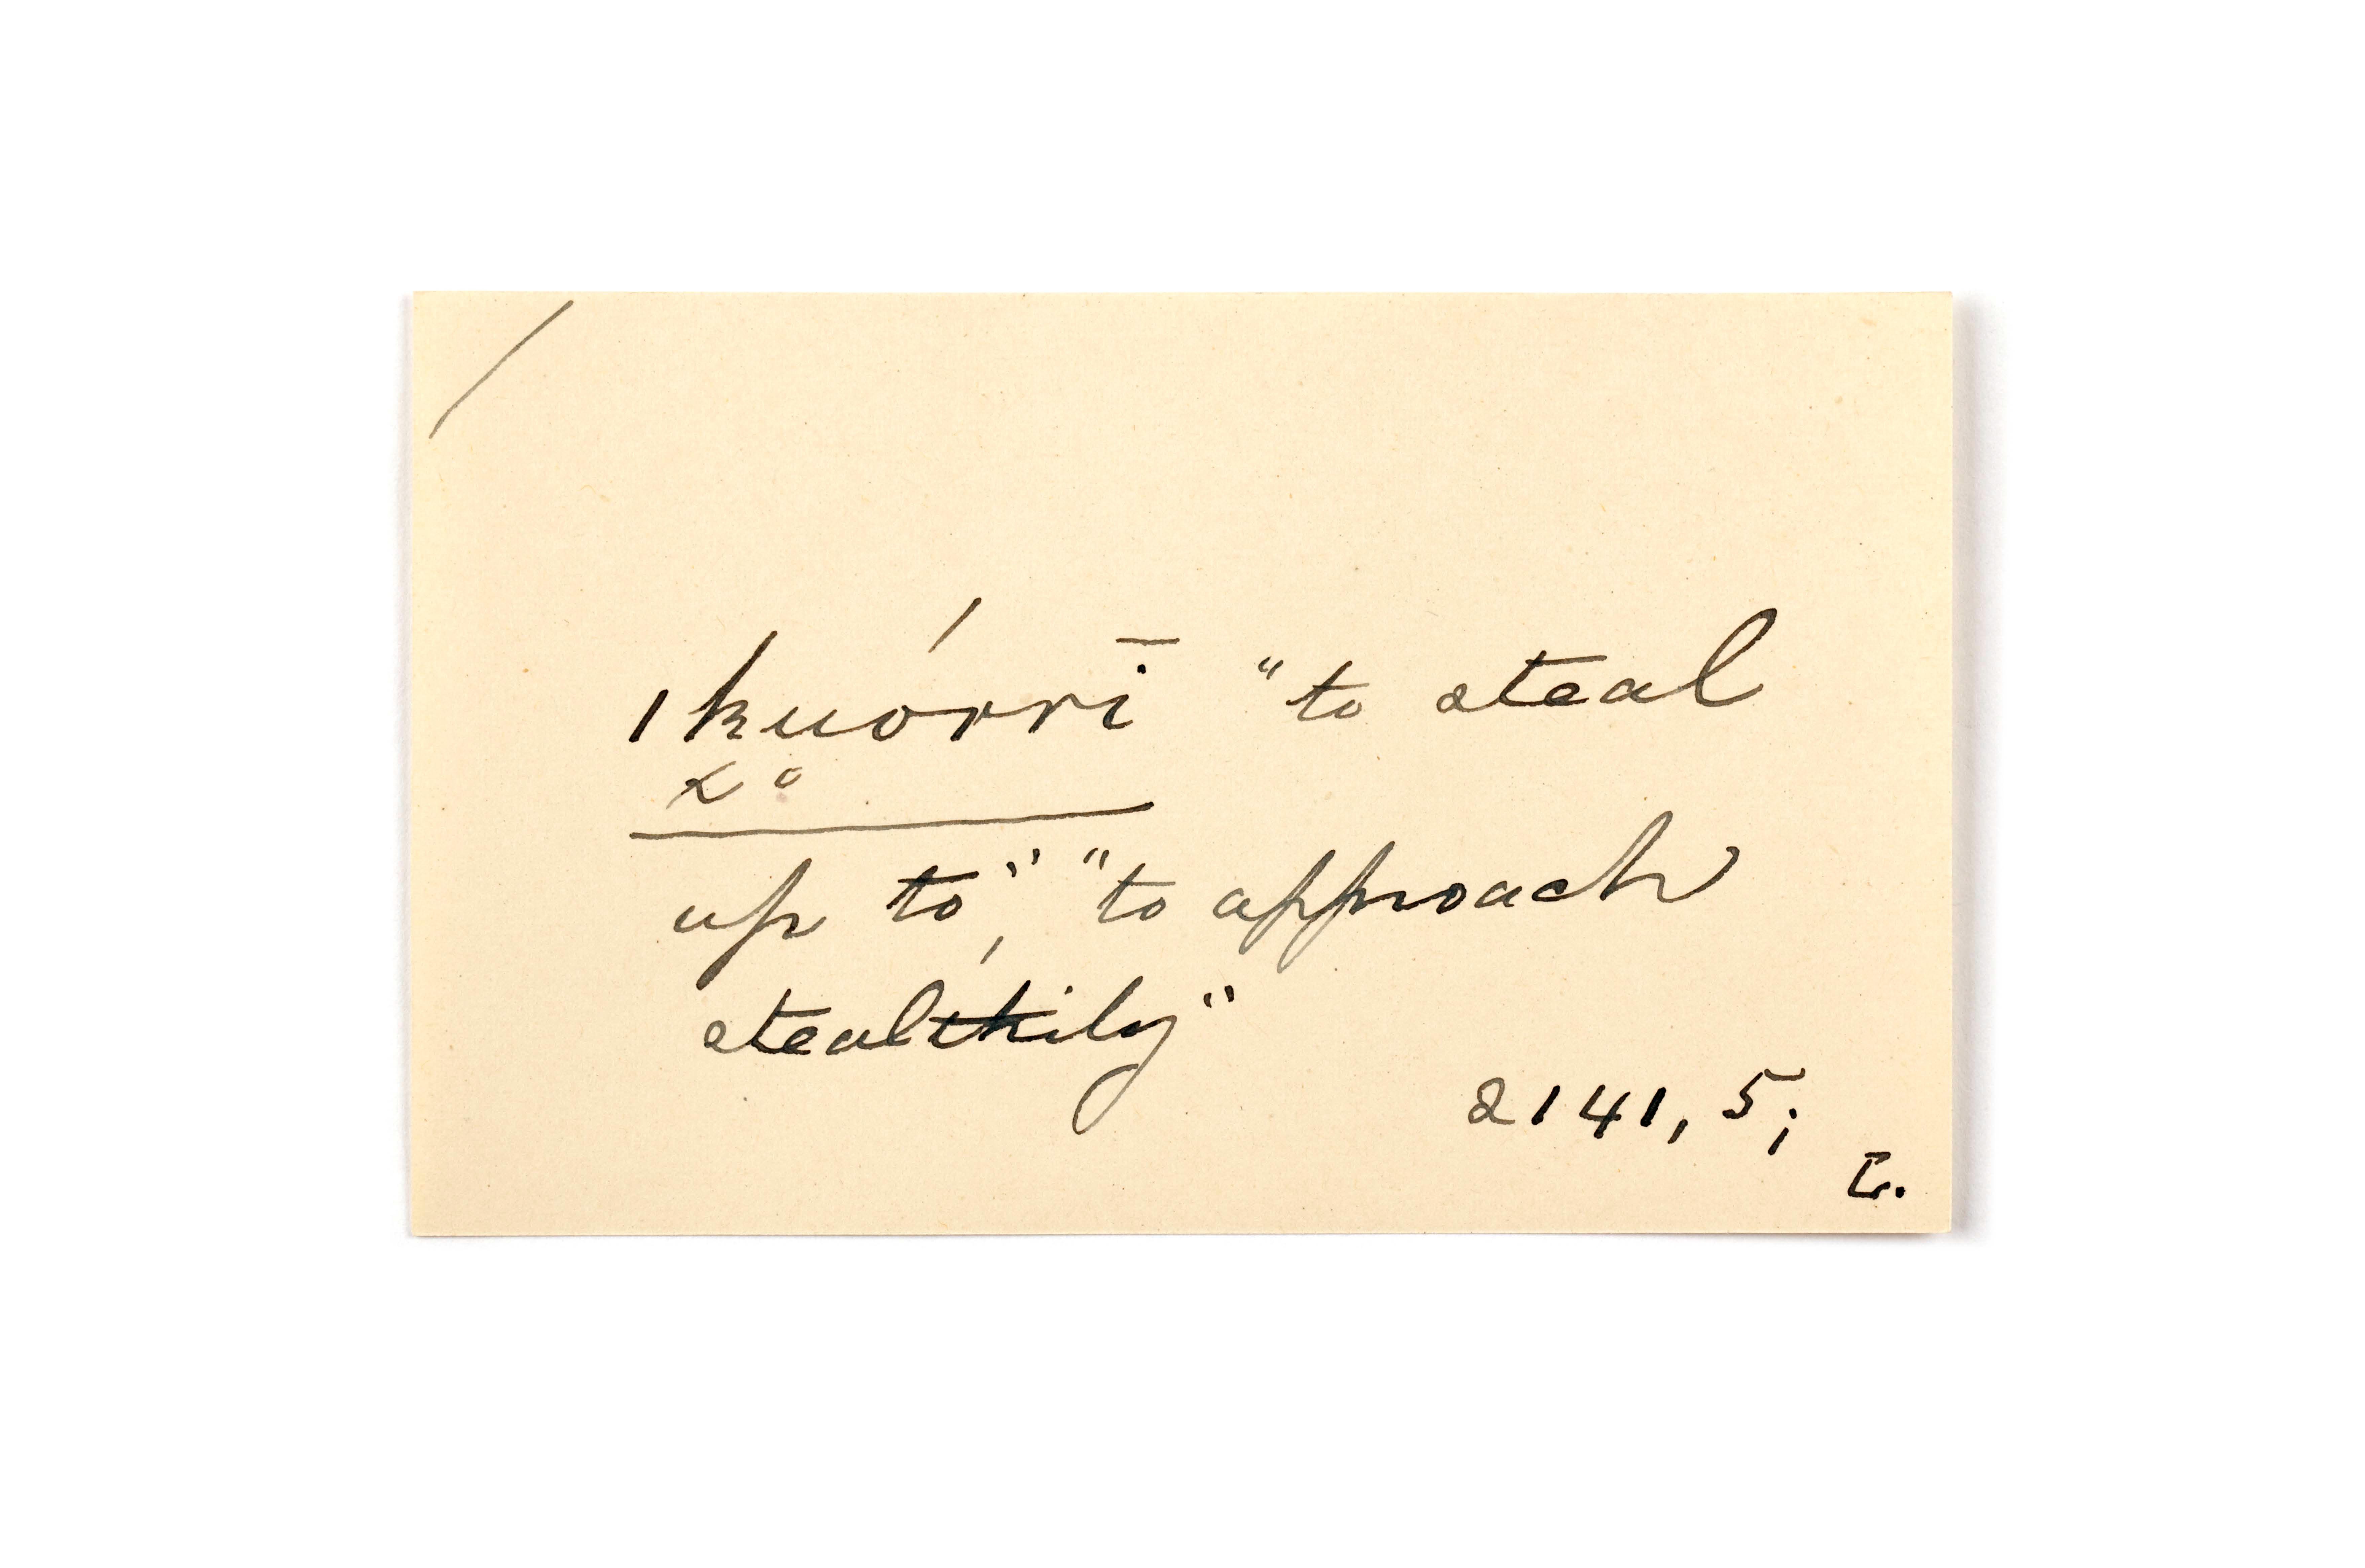 |kuórrī "to steal
< o
up to", "to approach
stealthily"
2141, 5;
L.